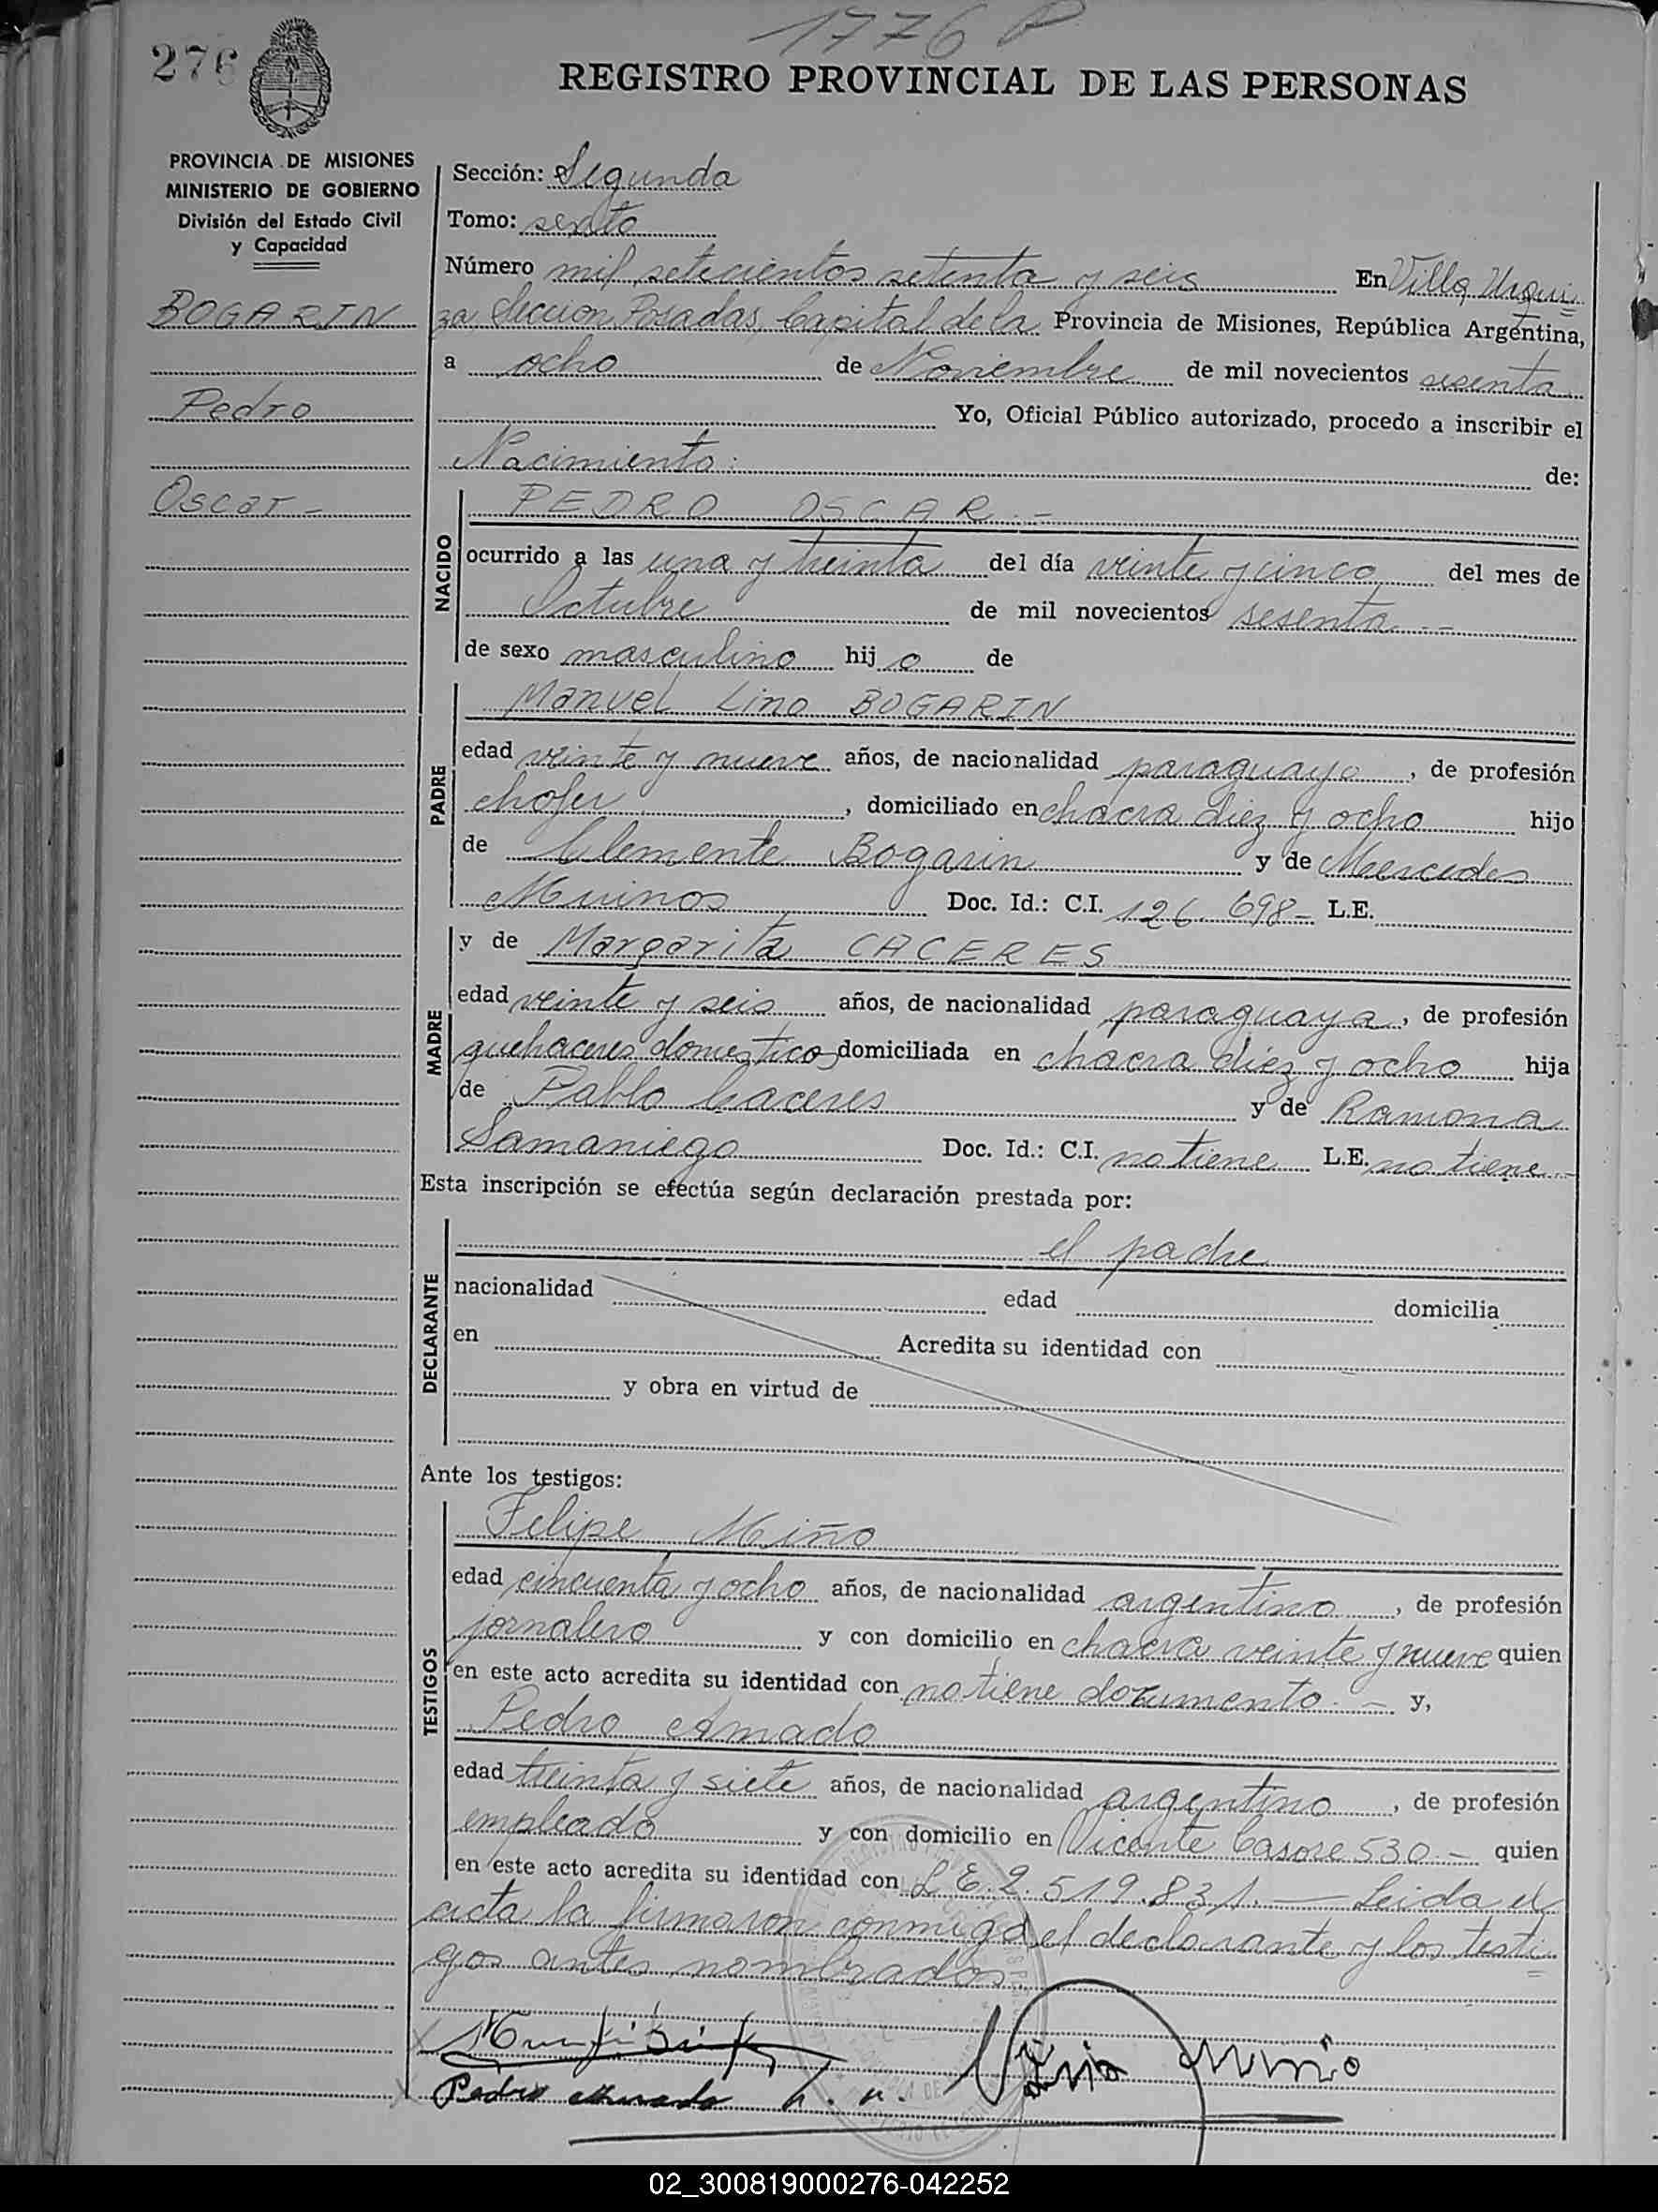 1776 P
276
REGISTRO PROVINCIAL DE LAS PERSONAS
PROVINCIA DE MISIONES
MINISTERIO DE GOBIERNO
División del Estado Civil
y Capacidad
BOGARIN
Pedro
Oscar -
Sección: Segunda
Tomo: sexto
Número mil setecientos setenta y seis En Villa Urqui=
za, Seccion Posadas, Capital de la Provincia de Misiones, República Argentina,
a ocho de Noviembre de mil novecientos sesenta
Yo, Oficial Público autorizado, procedo a inscribir el
Nacimiento: de:
NACIDO
PEDRO OSCAR.-
ocurrido a las una y treinta del día veinte y cinco del mes de
Octubre de mil novecientos sesenta.-
de sexo masculino hijo de
PADRE
Manuel Lino BOGARIN
edad veinte y nueve años, de nacionalidad paraguayo, de profesión
chofer, domiciliado en chacra diez y ocho hijo
de Clemente Bogarin y de Mercedes
Doc. Id.: C.I. 126.698- L.E.
MADRE
y de Margarita CACERES
edad veinte y seis años, de nacionalidad paraguaya, de profesión
quehaceres domestico, domiciliada en chacra diez y ocho hija
de Pablo Caceres y de Ramona
Samaniego Doc. Id.: C.I. no tiene L.E. no tiene.-
Esta inscripción se efectúa según declaración prestada por:
DECLARANTE
el padre
nacionalidad edad domicilia
en Acredita su identidad con
y obra en virtud de
Ante los testigos:
TESTIGOS
Felipe Miño
edad cincuenta y ocho años, de nacionalidad argentino, de profesión
jornalero y con domicilio en chacra veinte y nueve quien
en este acto acredita su identidad con no tiene documento.- y,
Pedro Amado
edad treinta y siete años, de nacionalidad argentino, de profesión
empleado y con domicilio en Vicente Casore 530.- quien
en este acto acredita su identidad con L.E. 2.519.831.- Leida el
acta la firmaron conmigo el declarante y los testi=
gos antes nombrados
Pedro Amado
Miño
02_300819000276-042252